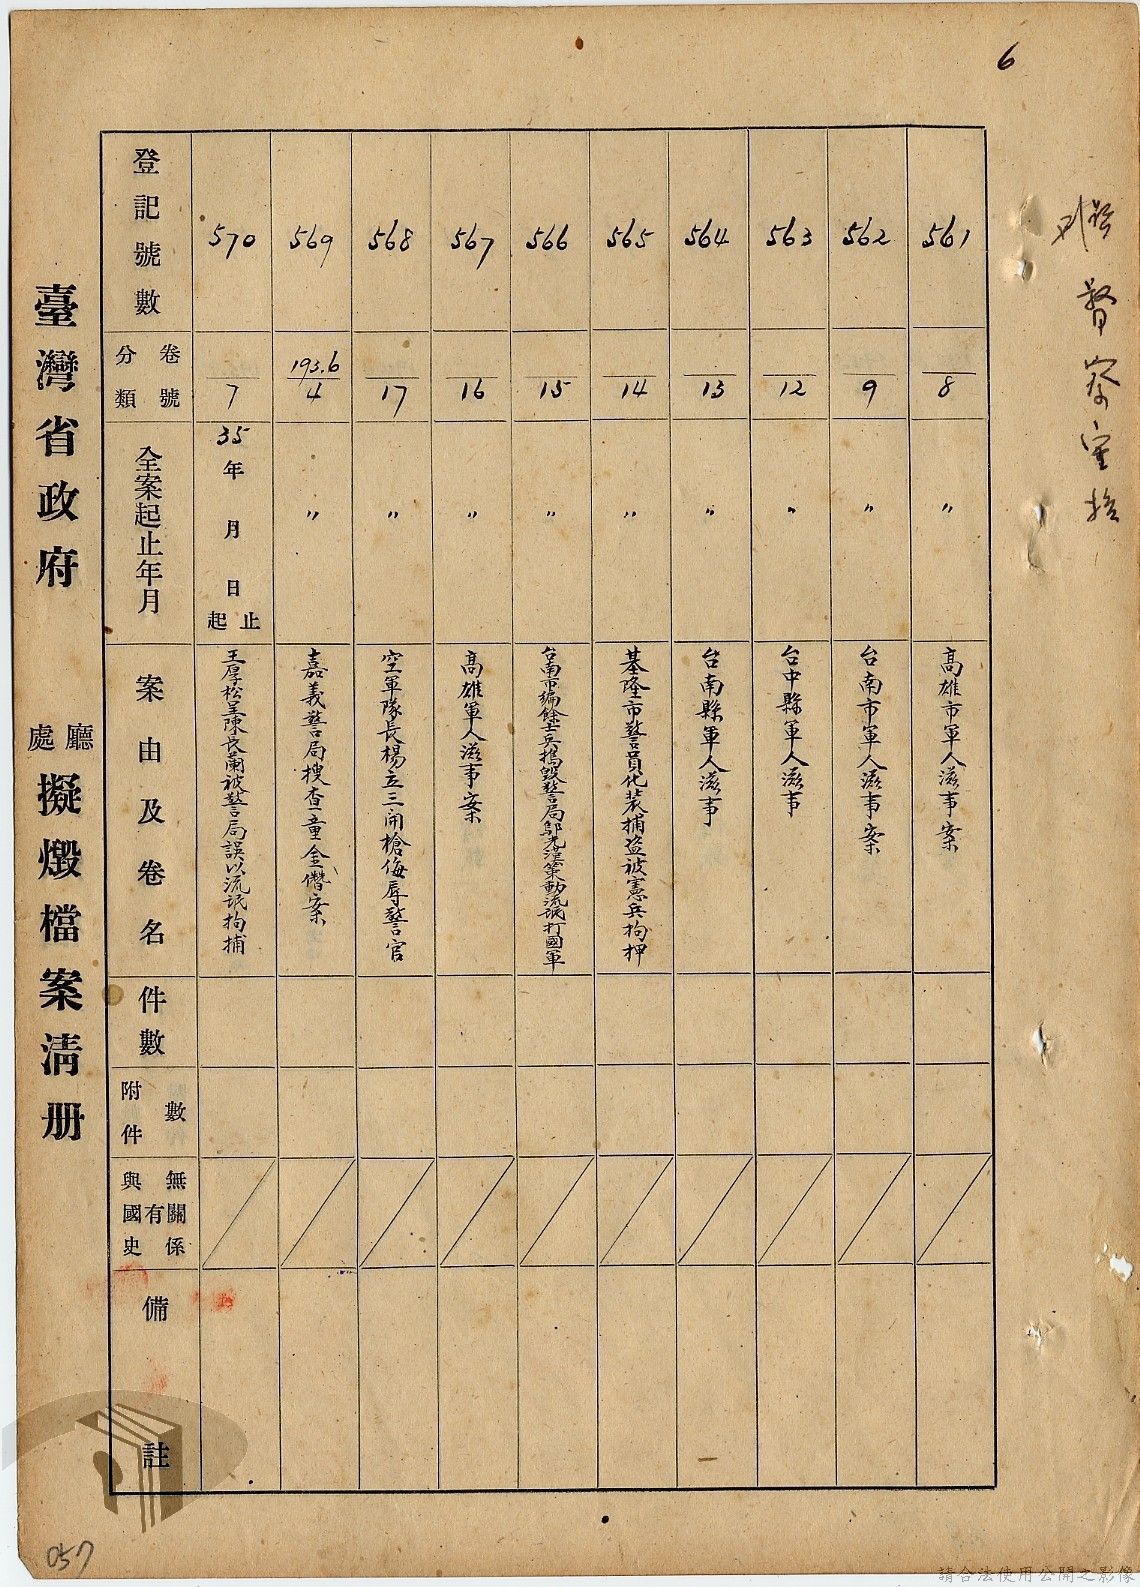 6
督察室
561
8
〃
高雄市軍人滋事案
562
9
〃
台南市軍人滋事案
563
12
〃
台中縣軍人滋事
564
13
〃
台南縣軍人滋事
565
14
〃
基隆市警員化裝捕盜被憲兵拘押
566
15
〃
台南市編餘士兵搗毀警局鄔光澤策動流氓打國軍
567
16
〃
高雄軍人滋事案
568
17
〃
空軍隊長楊立三開槍侮辱警官
569
193.6
4
〃
嘉義警局搜查童金儹案
570
7
35年 月 日起止
王厚松呈陳長蘭被警局誤以流氓拘捕
登記號數
分類卷號
全案起止年月
案由及卷名
件數
附件數
與國史有無關係
備註
臺灣省政府 廳處擬燬檔案清册
057
請合法使用公開之影像